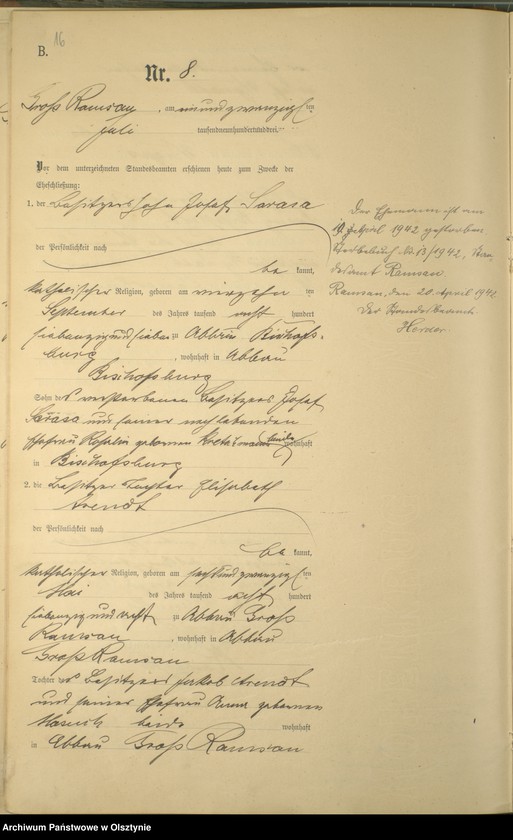 16
B.
Nr. 8.
Groß Ramsau, am einundzwanzigsten
Juli tausendneunhundertunddrei.
Vor dem unterzeichneten Standesbeamten erschienen heute zum Zwecke der
Eheschließung:
1. der Besitzersohn Josef Sarasa
der Persönlichkeit nach
be kannt,
katholischer Religion, geboren am vierzehn ten
September des Jahres tausend acht hundert
siebenzig und sieben zu Abbau Bischofs-
burg, wohnhaft in Abbau
Bischofsburg
Sohn des verstorbenen Besitzers Josef
Sarasa und seiner nachlebenden
Ehefrau Rosalia geborenen wohnhaft
in Bischofsburg
2. die Besitzer Tochter Elisabeth
Arendt
der Persönlichkeit nach
be kannt,
katholischer Religion, geboren am sechsundzwanzigsten
Mai des Jahres tausend acht hundert
siebenzig und acht zu Abbau Groß
Ramsau, wohnhaft in Abbau
Groß Ramsau
Tochter des Besitzers Jakob Arendt
und seiner Ehefrau Anna geborenen
beide wohnhaft
in Abbau Groß Ramsau
Der Ehemann ist am
April 1942 gestorben
Sterbebuch Nr. 13/1942, Stan-
desamt Ramsau
Ramsau, den 20. April 1942
Der Standesbeamte.
Herder
Archiwum Państwowe w Olsztynie